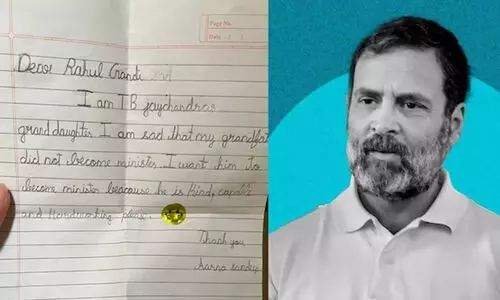 Page No.
Date
Dear Rahul Gandi
I am TB jaychandras
grand daughter. I am sad that my grandfat
did not become minister. I want him to
become minister beacause he is Kind,
and Hardworking
Thank you,
Aarna sandeep